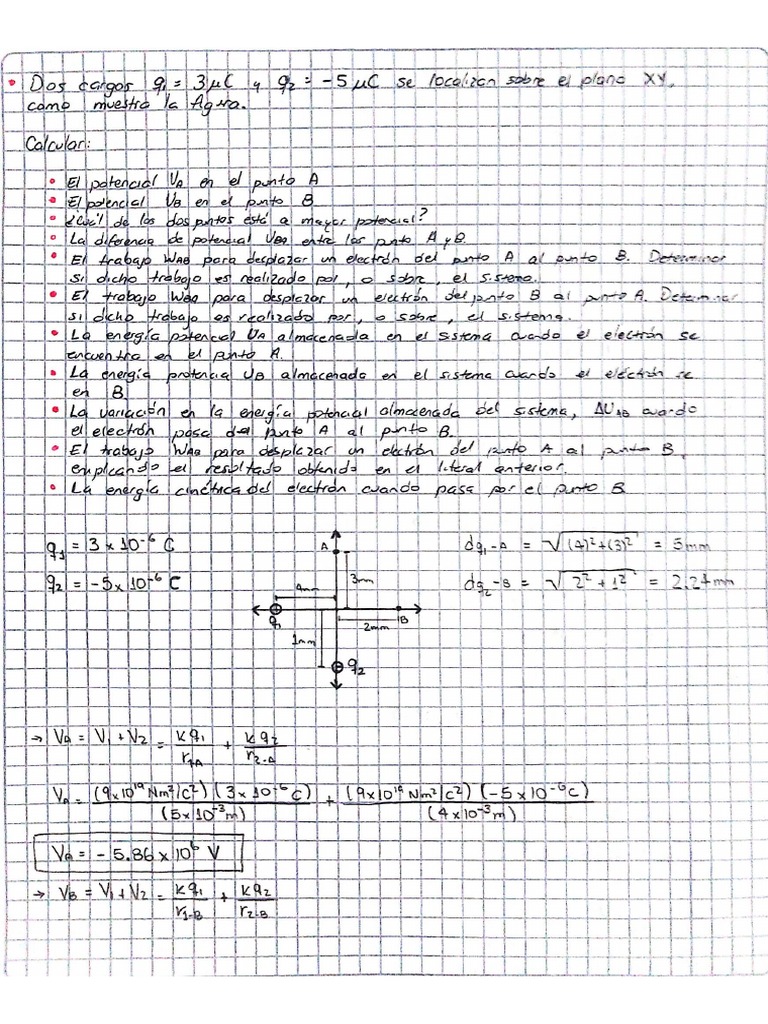 • Dos cargas q₁ = 3 μC y q₂ = -5 μC se localizan sobre el plano XY,
como muestra la figura.
Calcular:
• El potencial VA en el punto A
• El potencial VB en el punto B
• ¿Cuál de los dos puntos está a mayor potencial?
• La diferencia de potencial VBA entre los punto A y B.
• El trabajo WAB para desplazar un electrón del punto A al punto B. Determinar
si dicho trabajo es realizado por, o sobre, el sistema.
• El trabajo WBA para desplazar un electrón del punto B al punto A. Determinar
si dicho trabajo es realizado por, o sobre, el sistema.
• La energía potencial UA almacenada en el sistema cuando el electrón se
encuentra en el punto A.
• La energía protencia UB almacenada en el sistema cuando el electrón se
en B
• La variación en la energía potencial almacenada del sistema, ΔUAB cuando
el electrón pasa del punto A al punto B.
• El trabajo WAB para desplazar un electrón del punto A al punto B,
empleando el resultado obtenido en el literal anterior.
• La energía cinética del electrón cuando pasa por el punto B
q₁ = 3 x 10⁻⁶ C
q₂ = -5 x 10⁻⁶ C
A
3mm
4mm
q₁
B
2mm
1mm
q₂
dq₁-A = √(4)²+(3)² = 5mm
dq₂-B = √2² + 1² = 2.24mm
→ VA = V₁ + V₂ = kq₁/r1A + kq₂/r2-A
VA = (9x10¹⁹ Nm²/C²)(3 x 10⁻⁶ C)/(5 x 10⁻³ m) + (9x10¹⁹ Nm²/C²)(-5 x 10⁻⁶ C)/(4 x 10⁻³ m)
VA = -5.86 x 10⁶ V
→ VB = V₁ + V₂ = kq₁/r1-B + kq₂/r2-B